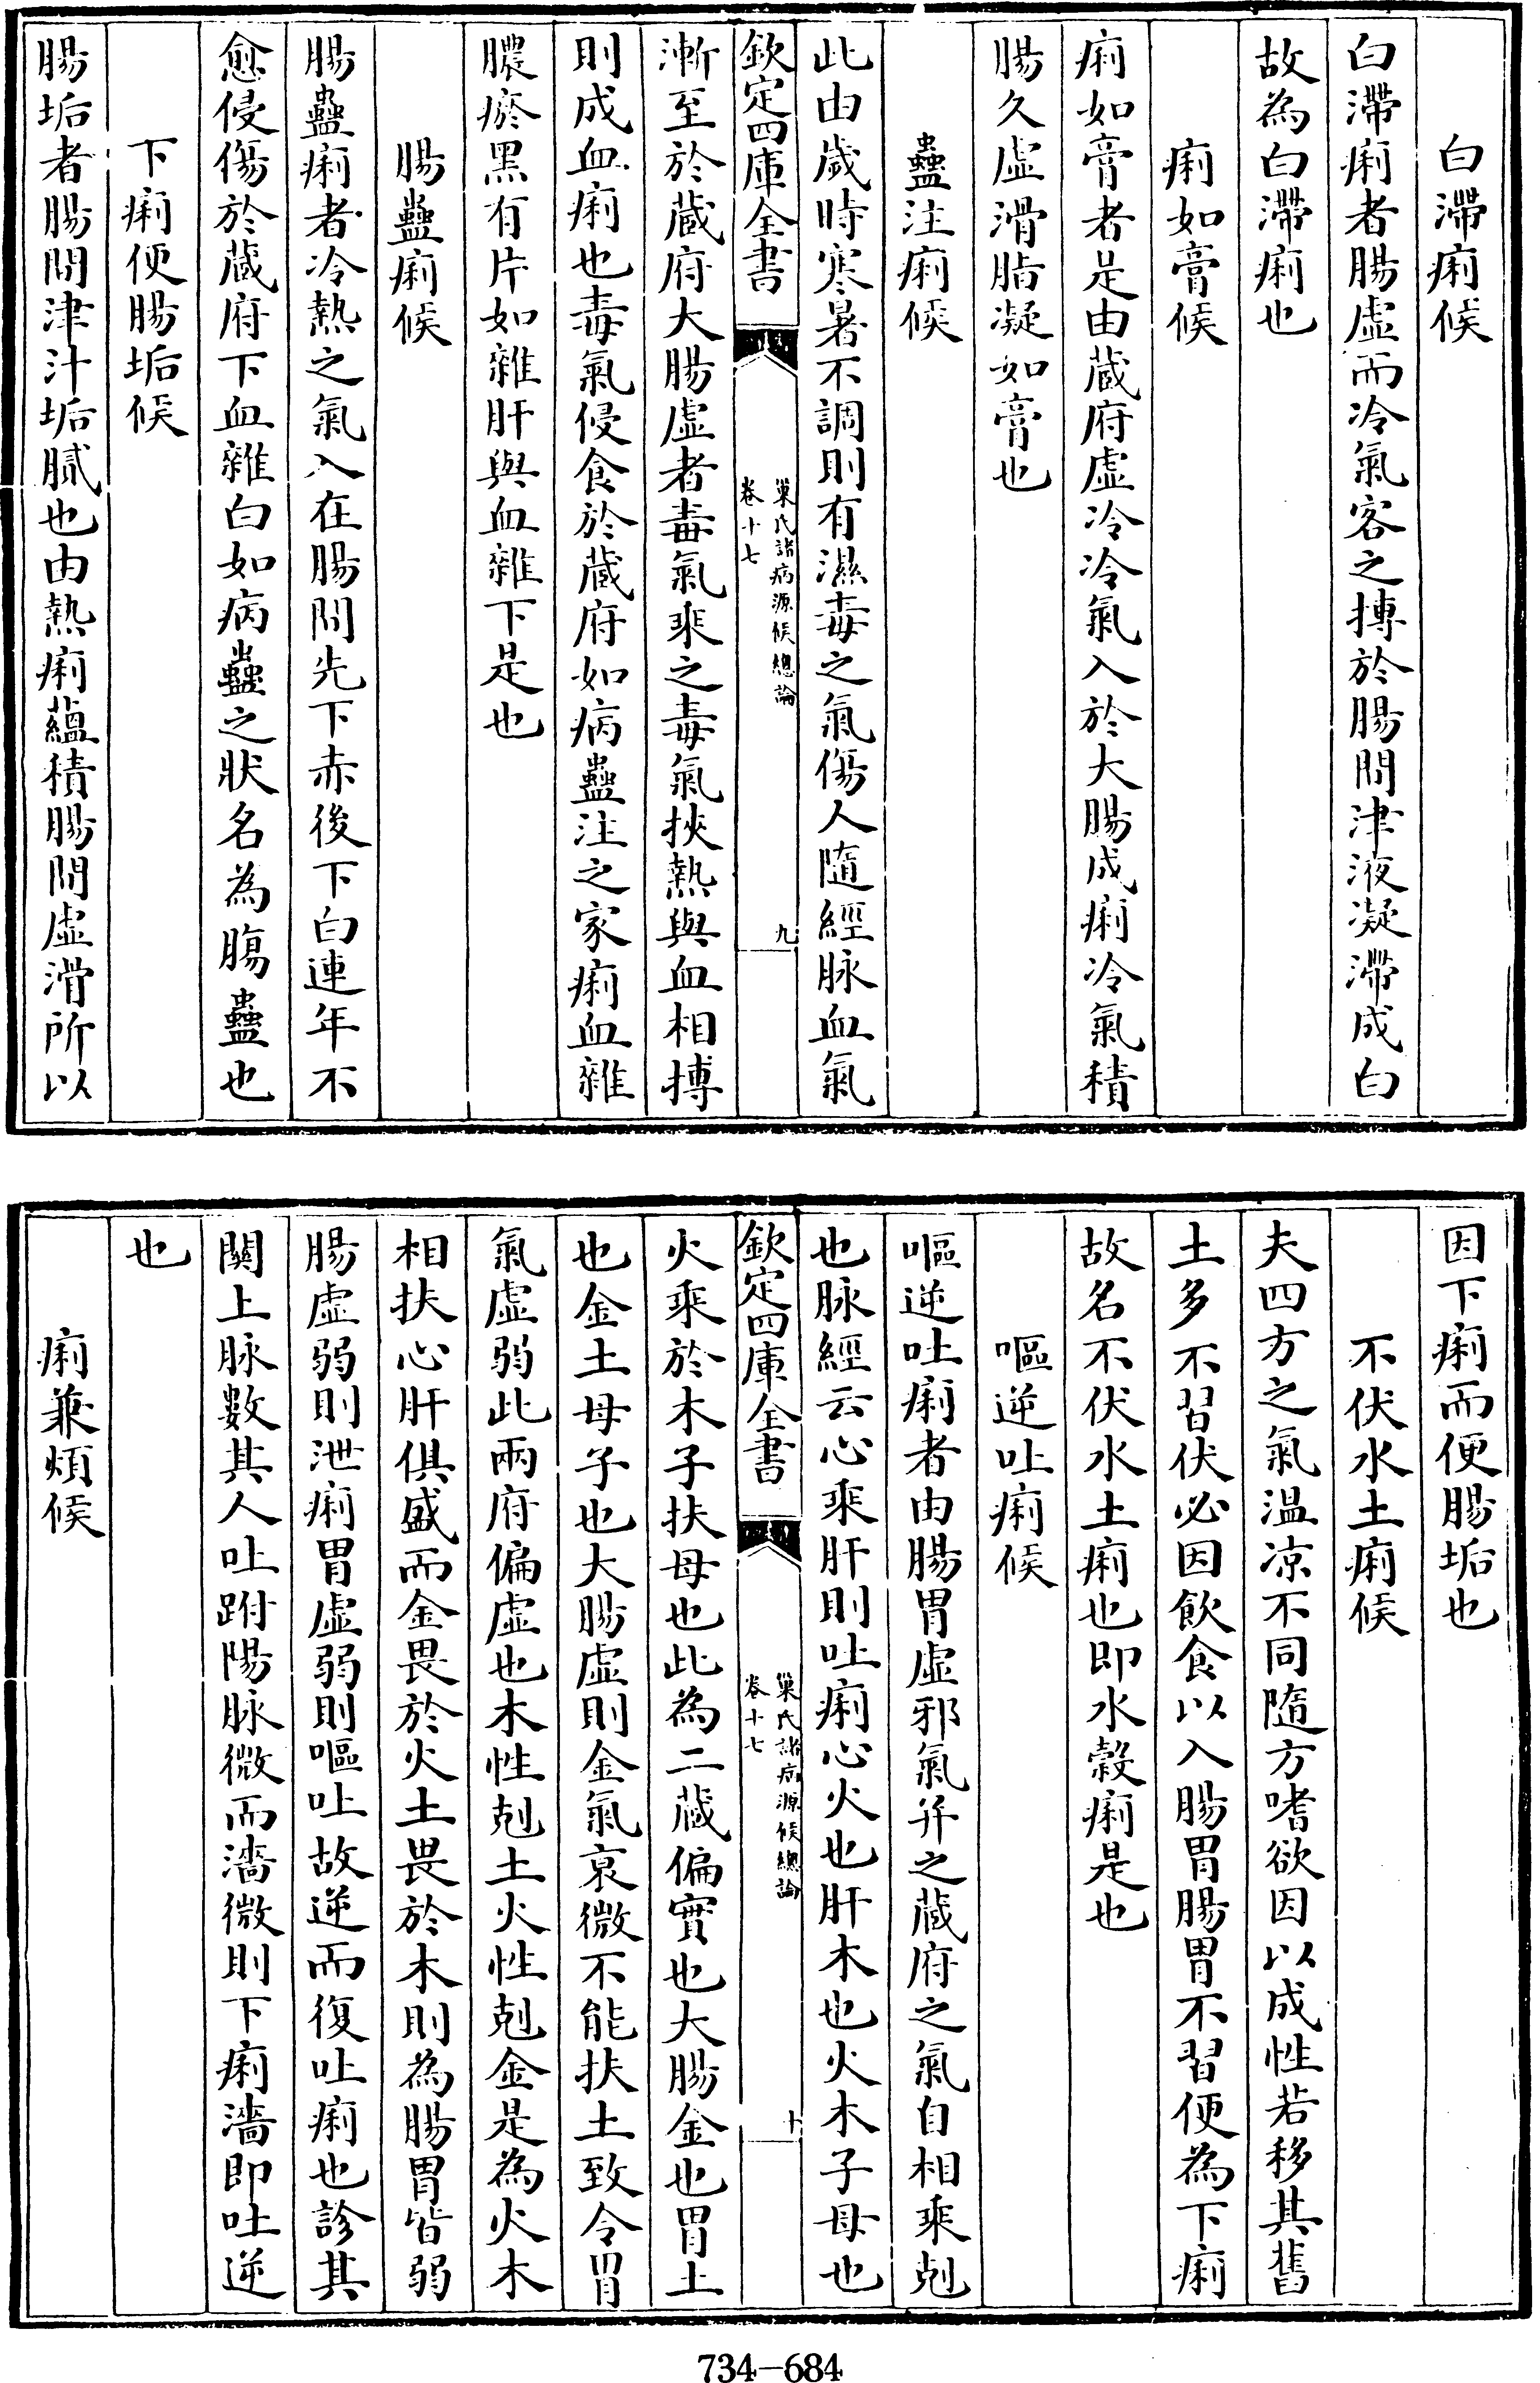 白滯痢候
白滯痢者腸虛而冷氣客之搏於腸間津液凝滯成白
故為白滯痢也
痢如膏候
痢如膏者是由藏府虛冷冷氣入於大腸成痢冷氣積
腸久虛滑脂凝如膏也
蠱注痢候
此由歲時寒暑不調則有濕毒之氣傷人隨經脉血氣
欽定四庫全書
巢氏諸病源候總論
卷十七
九
漸至於藏府大腸虛者毒氣乘之毒氣挾熱與血相搏
則成血痢也毒氣侵食於藏府如病蠱注之家痢血雜
膿瘀黑有片如雜肝與血雜下是也
腸蠱痢候
腸蠱痢者冷熱之氣入在腸間先下赤後下白連年不
愈侵傷於藏府下血雜白如病蠱之狀名為腸蠱也
下痢便腸垢候
腸垢者腸間津汁垢膩也由熱痢蘊積腸間虛滑所以
因下痢而便腸垢也
不伏水土痢候
夫四方之氣温凉不同隨方嗜欲因以成性若移其舊
土多不習伏必因飲食以入腸胃腸胃不習便為下痢
故名不伏水土痢也即水穀痢是也
嘔逆吐痢候
嘔逆吐痢者由腸胃虛邪氣并之藏府之氣自相乘剋
也脉經云心乘肝則吐痢心火也肝木也火木子母也
欽定四庫全書
巢氏諸病源候總論
卷十七
十
火乘於木子扶母也此為二藏偏實也大腸金也胃土
也金土母子也大腸虛則金氣衰微不能扶土致令胃
氣虛弱此兩府偏虛也木性剋土火性剋金是為火木
相扶心肝俱盛而金畏於火土畏於木則為腸胃皆弱
腸虛弱則泄痢胃虛弱則嘔吐故逆而復吐痢也診其
關上脉數其人吐跗陽脉微而濇微則下痢濇即吐逆
也
痢兼煩候
734-684